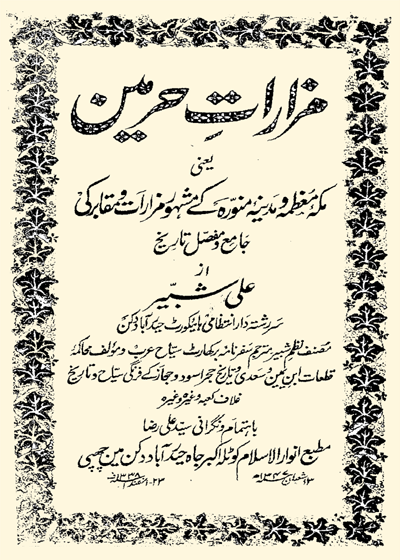 مزاراتِ حرمین
یعنی
مکہ معظمہ و مدینہ منورہ کے مشہور مزارات و مقابر کی
جامع و مفصل تاریخ
از
علی شبیر
سررشتہ دار انتظامی ہائیکورٹ حیدرآباد دکن
مصنف نظم شبیر و مترجم سفرنامہ برکھارٹ سیاح عرب و مؤلف محاکمہ
قطعات ابن یمین و سعدی و تاریخ حجر اسود و حجاز کے فرنگی سیاح و تاریخ
غلاف کعبہ وغیرہ وغیرہ
باہتمام و نگرانی سید علی رضا
مطبع انوار الاسلام کوٹلہ اکبر جاہ حیدرآباد دکن مین چھپی